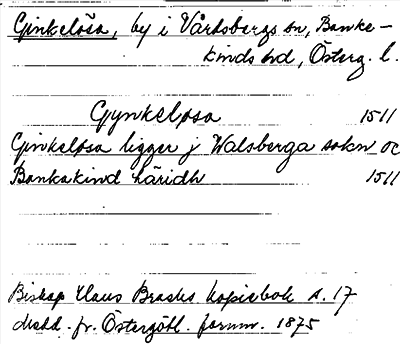 Ginkelösa, by i Vårdsbergs sn, Banke-
kinds hd, Österg. l.
Gynkeløsa 1511
Ginkeløsa ligger j Walsberga sokn oc
Bankakind häridh 1511
Biskop Hans Brasks kopiebok s. 17
Medd. fr. Östergötl. fornm. 1875